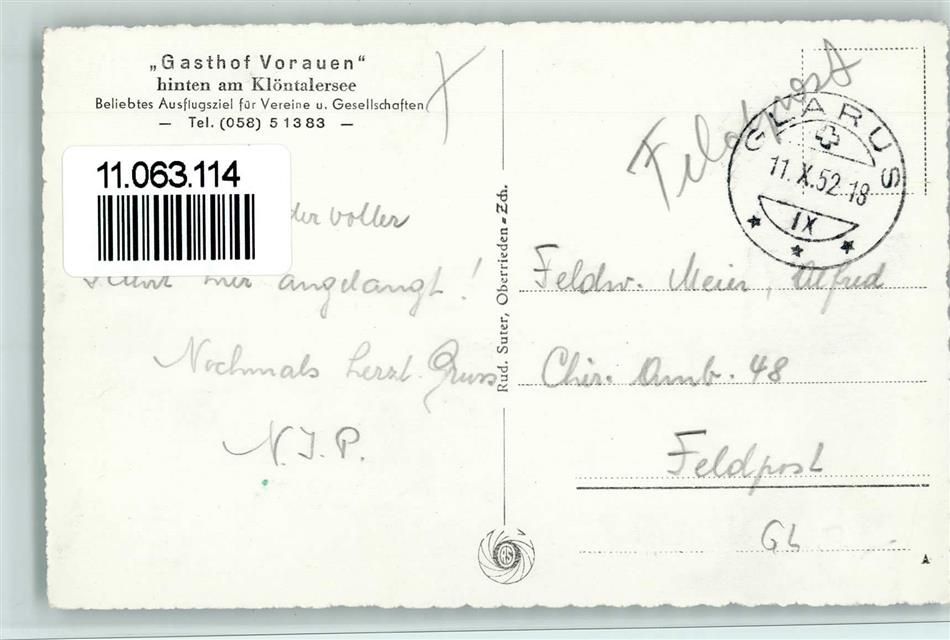 „Gasthof Vorauen“
hinten am Klöntalersee
Beliebtes Ausflugsziel für Vereine u. Gesellschaften
— Tel. (058) 5 13 83 —
11.063.114
der voller
hier angelangt!
Nochmals herzl. Gruss
N.J.P.
Rud. Suter, Oberrieden-Zch.
RS
Feldpost
GLARUS
11.X.52.18
IX
Feldw. Meier, Alfred
Chir. Amb. 48
Feldpost
GL
A